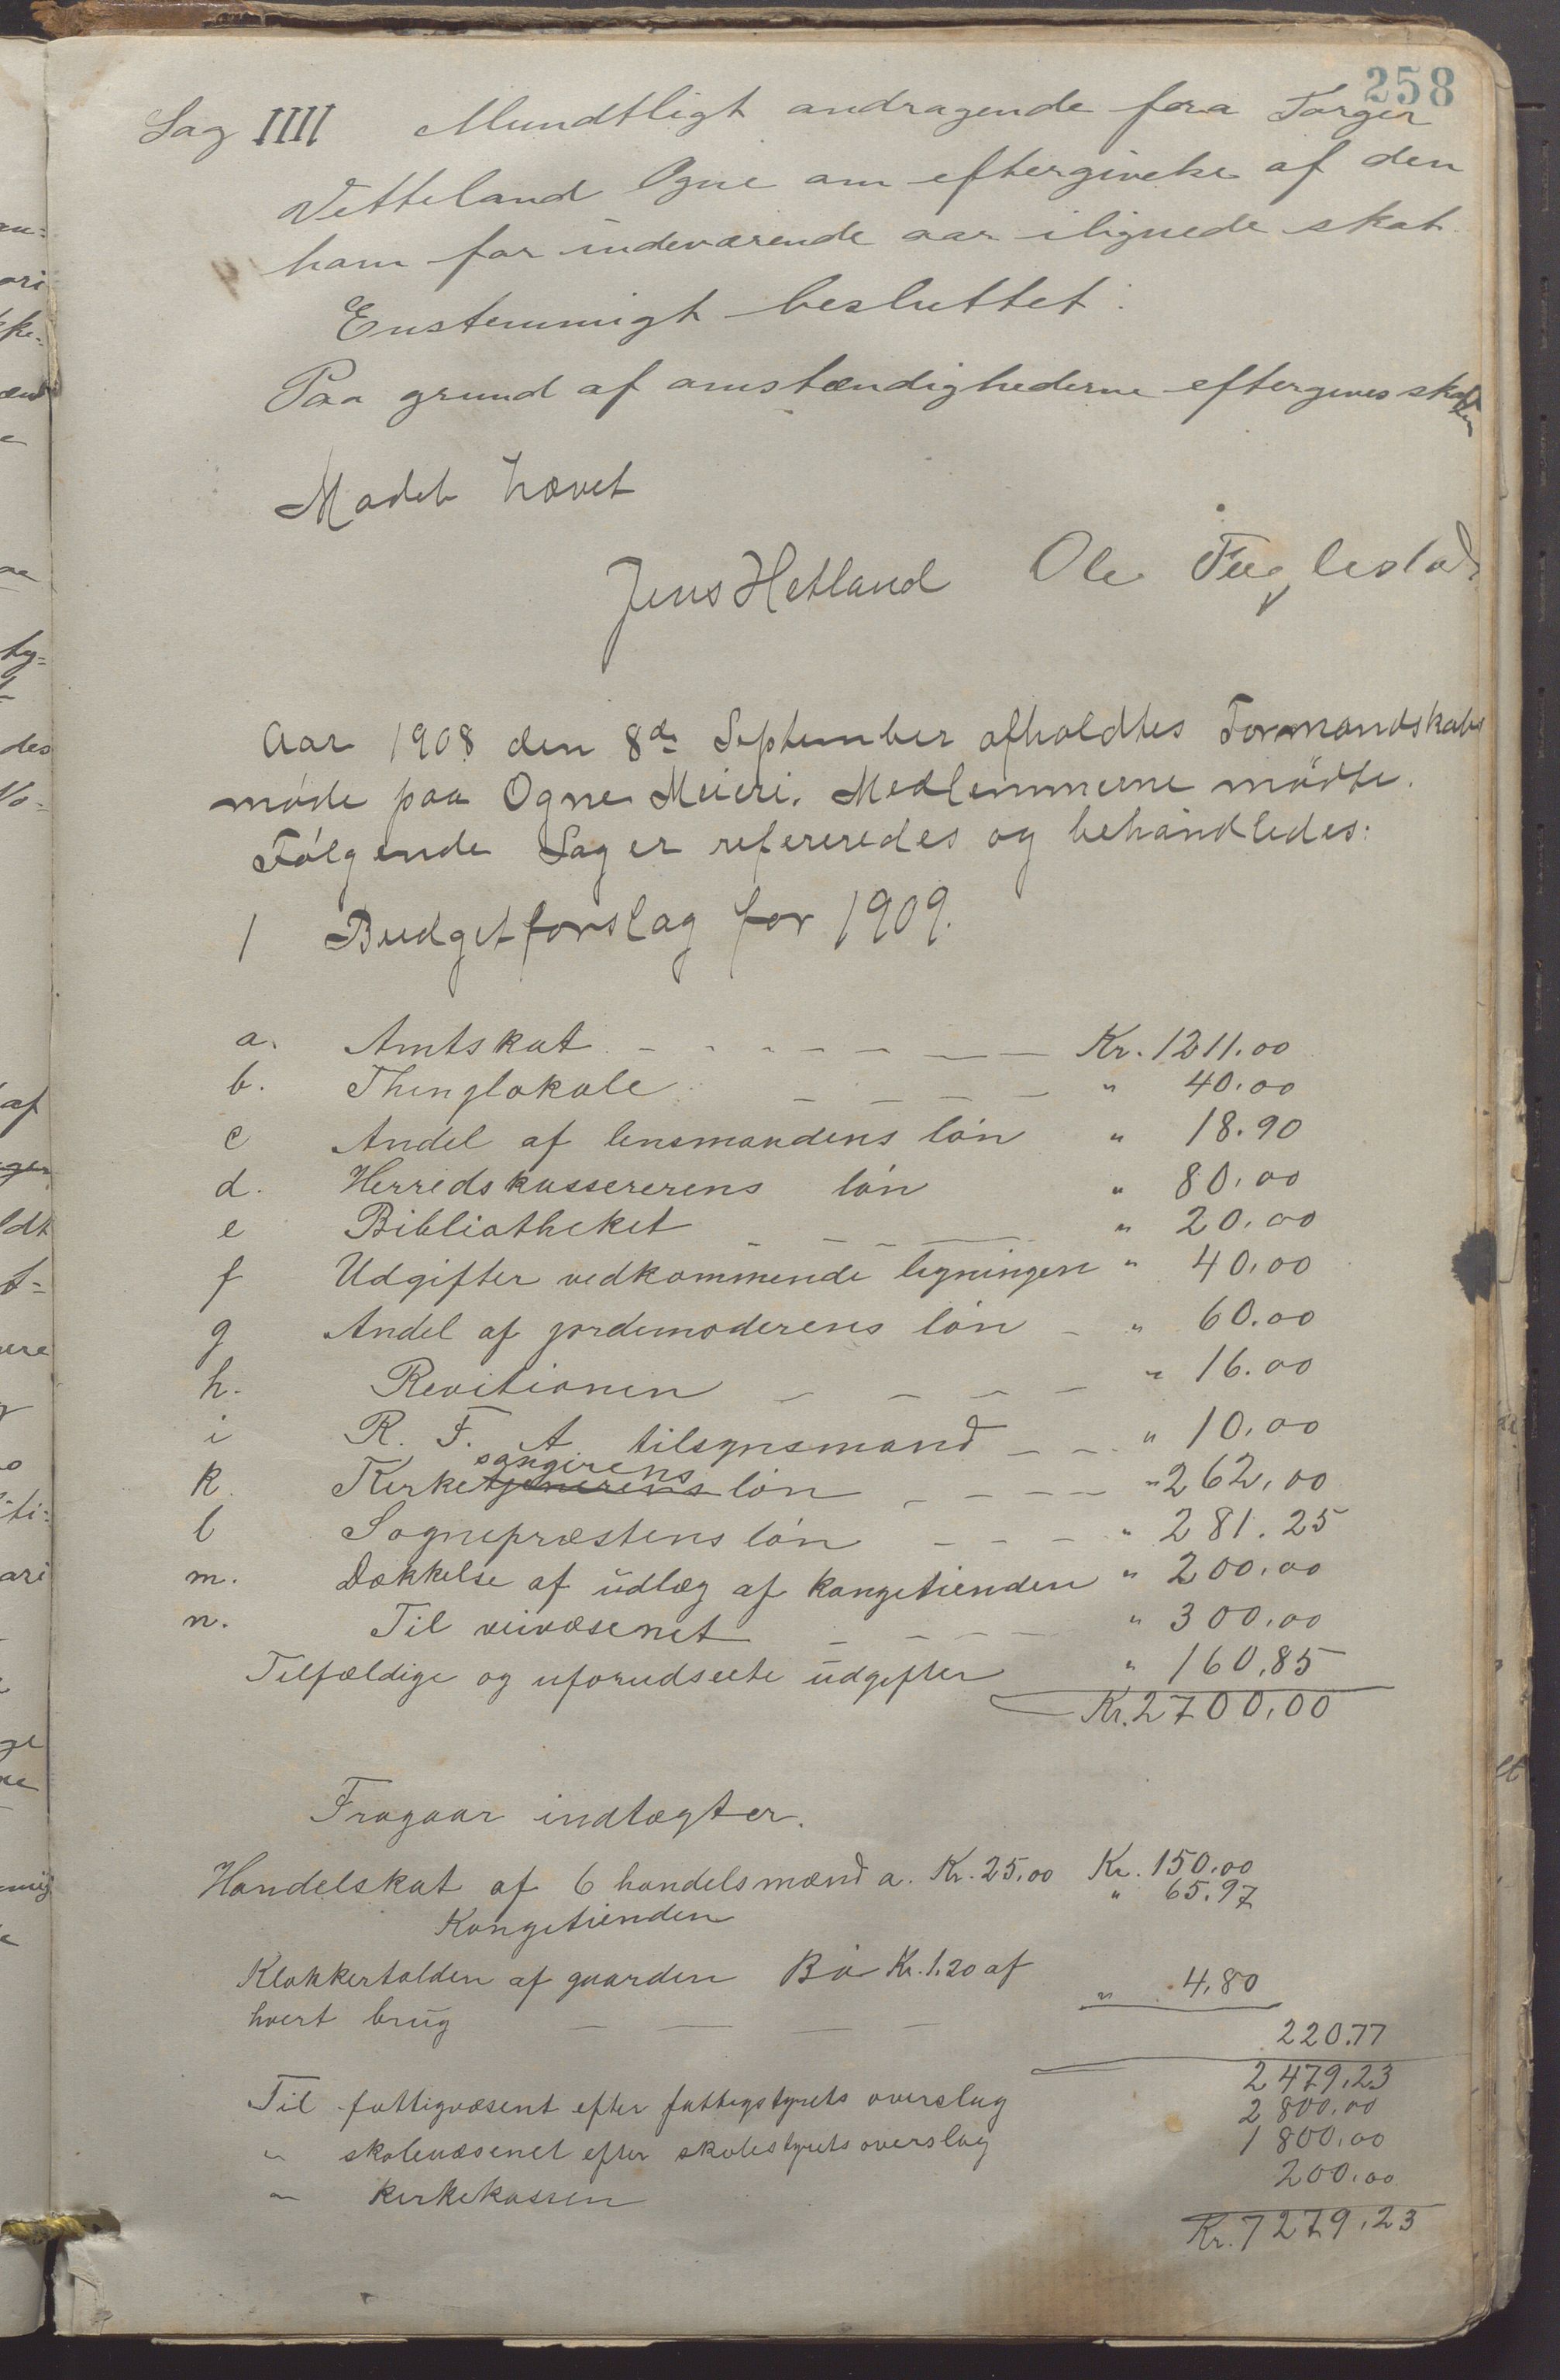 258
Sag IIII Mundtligt andragende fra Torger
Vetteland Ogne om eftergivelse af den
ham for indeværende aar ilignede skat.
Enstemmigt besluttet:
Paa grund af omstændighederne eftergives skatten
Mødet hævet
Jens Hetland Ole Fuglestad
Aar 1908 den 8de September afholdtes Formandskabs
møde paa Ogne Meieri. Medlemmerne mødte.
Følgende Sager refereredes og behandledes:
1 Budgetforslag for 1909.
a. Amtskat - - - - - - Kr. 1211.00
b. Thinglokale - - - - " 40.00
c Andel af lensmandens løn " 18.90
d. Herredskassererens løn " 80.00
e Bibliotheket - - - - " 20.00
f Udgifter vedkommende ligningen " 40.00
g Andel af jordemoderens løn - " 60.00
h. Revitionen - - - - " 16.00
i R. F. A. tilsynsmand - - " 10.00
k. Kirkesangerens løn - - - - " 262.00
l Sognepræstens løn - - - " 281.25
m. Dækkelse af udlæg af kongetienden " 200.00
n. Til veivæsenet - - - - " 300.00
Tilfældige og uforudseete udgifter " 160,85
Kr. 2700,00
Fragaar indtægter.
Handelskat af 6 handelsmænd a. Kr. 25.00 Kr. 150.00
Kongetienden " 65.97
Klokkertolden af gaarden Bø Kr. 1.20 af
hvert brug - - - - " 4,80
220.77
2479,23
Til fattigvæsent efter fattigstyrets overslag 2800.00
" skolevæsenet efter skolestyrets overslag 1800.00
" kirkekassen 200.00
Kr. 7279,23